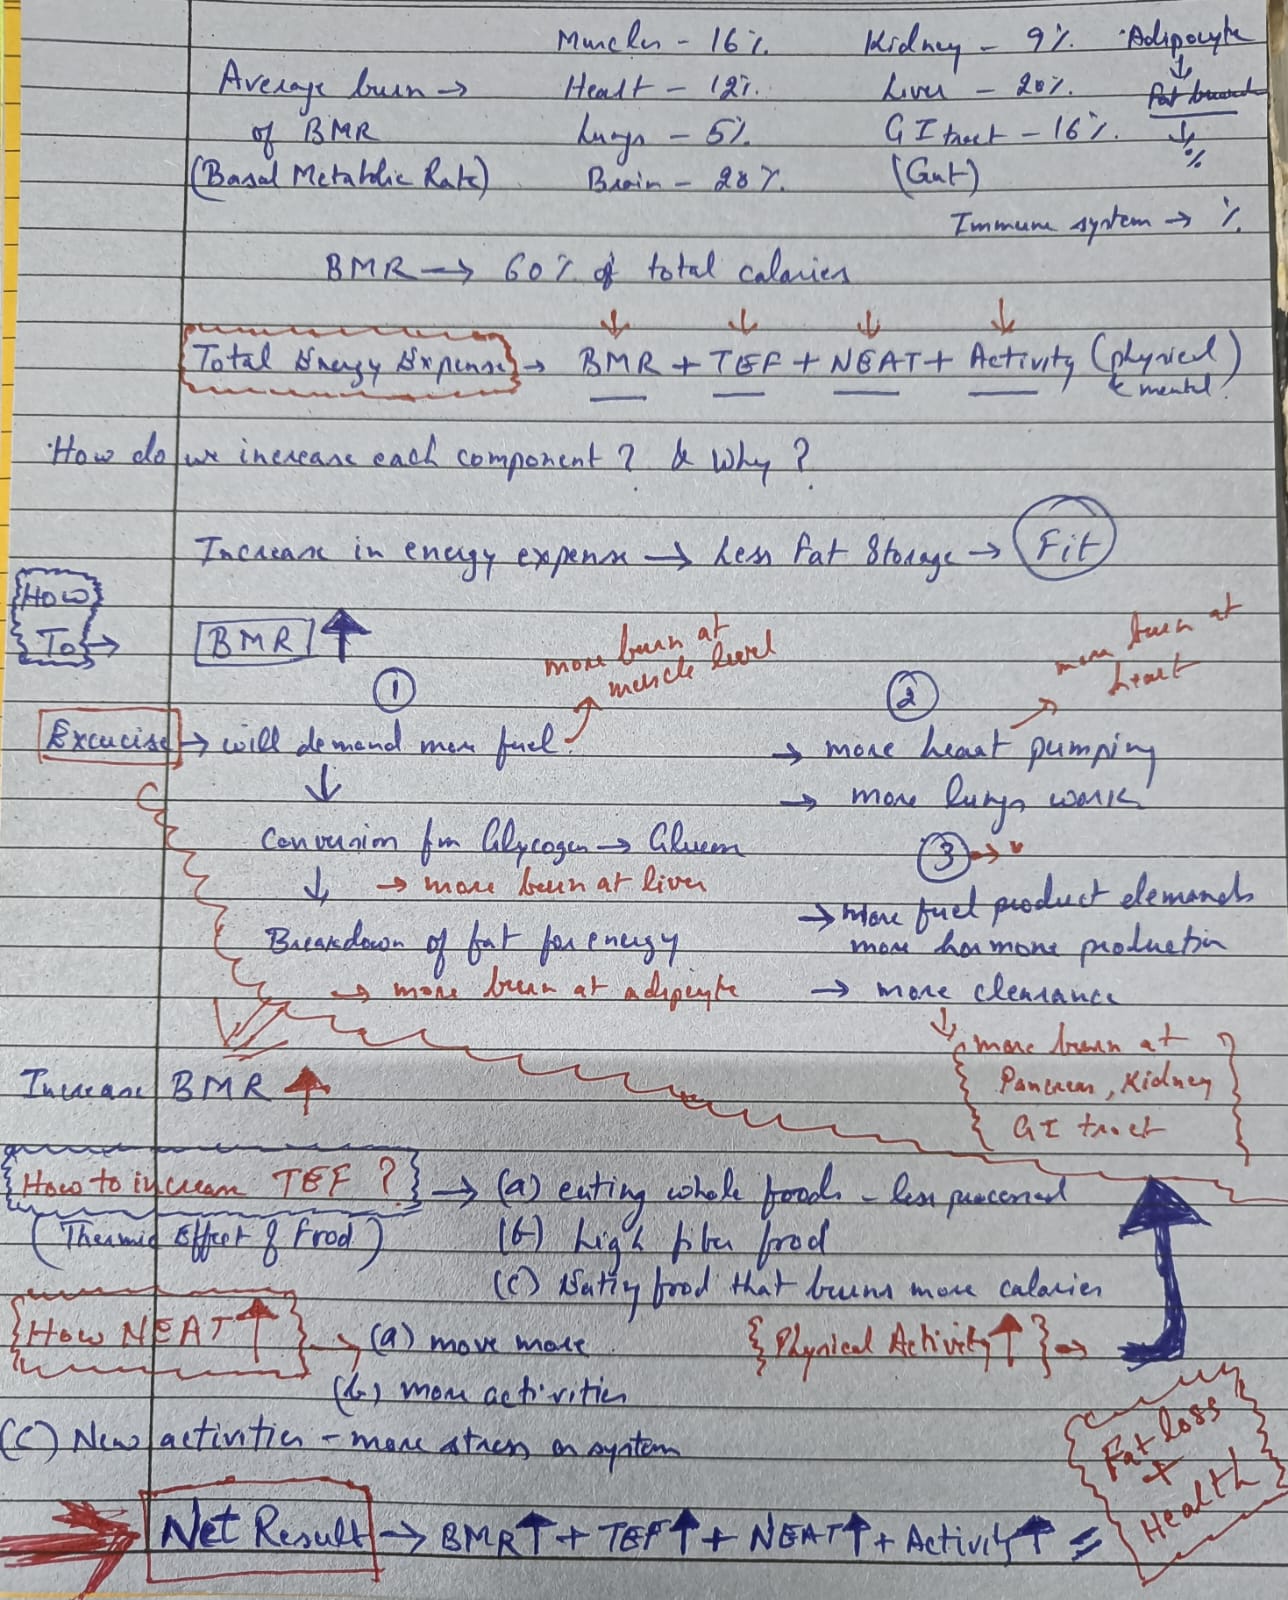 Muscles - 16%. Kidney - 9%. Adipocyte
Average burn → Heart - 12%. Liver - 20%.
of BMR Lungs - 5%. GI tract - 16%. ↓ %
(Basal Metabolic Rate) Brain - 20%. (Gut)
Immune system → %.
BMR → 60% of total calories
Total Energy Expense → BMR + TEF + NEAT + Activity (physical
& mental)
How do we increase each component? & Why?
Increase in energy expense → Less Fat Storage → Fit
How
To → BMR ↑
more burn at
muscle level
more burn at
heart
① ②
Excucise → will demand more fuel → more heart pumping
↓ → more lungs work
Conversion fm Glycogen → Glucose ③ →
↓ → more burn at liver
→ more fuel product demands
Breakdown of fat for energy more hormone production
→ more burn at adipocyte → more clearance
↓ more burn at
Increase BMR ↑ Pancreas, Kidney
GI tract
How to increase TEF? → (a) eating whole foods - less processed
(Thermic Effect of Food) (b) high fiber food
(c) Eating food that burns more calories
How NEAT ↑ → (a) move more {Physical Activity ↑} →
(b) more activities
(c) New activities - more stress on system
Fat loss
+
Health
Net Result → BMR↑ + TEF↑ + NEAT↑ + Activity↑ =